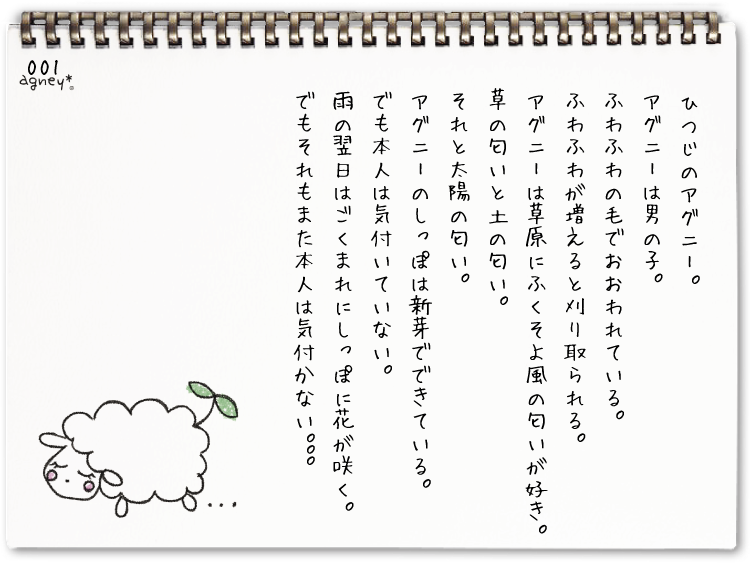 001
agney*
ひつじのアグニー。
アグニーは男の子。
ふわふわの毛でおおわれている。
ふわふわが増えると刈り取られる。
アグニーは草原にふくそよ風の匂いが好き。
草の匂いと土の匂い。
それと太陽の匂い。
アグニーのしっぽは新芽でできている。
でも本人は気付いていない。
雨の翌日はごくまれにしっぽに花が咲く。
でもそれもまた本人は気付かない。。。
...